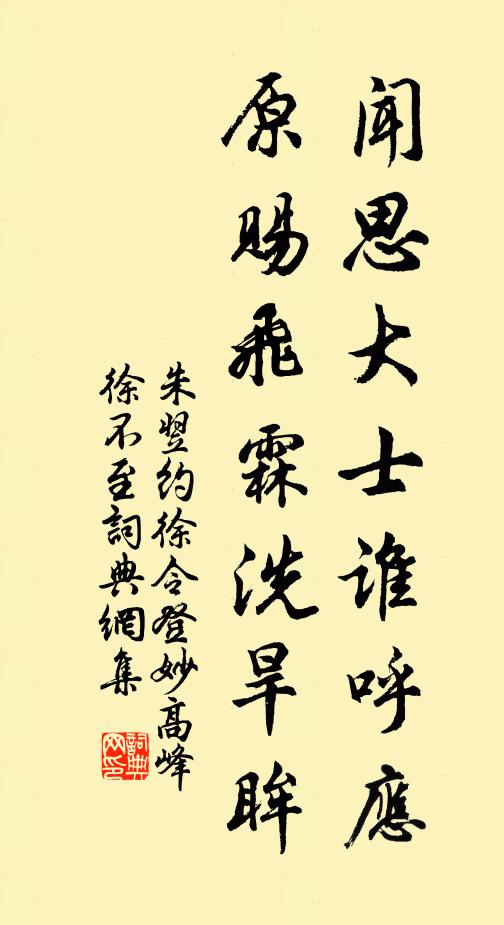 闻思大士谁呼應
原賜飛霖洗旱眸
朱翌約徐令登妙高峰
徐不至詞典網集
詞典
网印